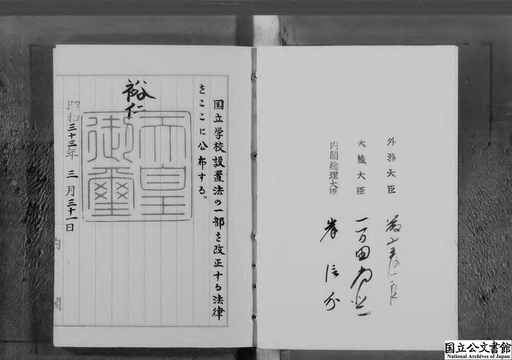 国立学校設置法の一部を改正する法律
をここに公布する。
裕仁
天皇御璽
昭和三十三年三月三十一日
内閣
外務大臣
大蔵大臣 一万田尚登
内閣総理大臣 岸信介
国立公文書館
National Archives of Japan